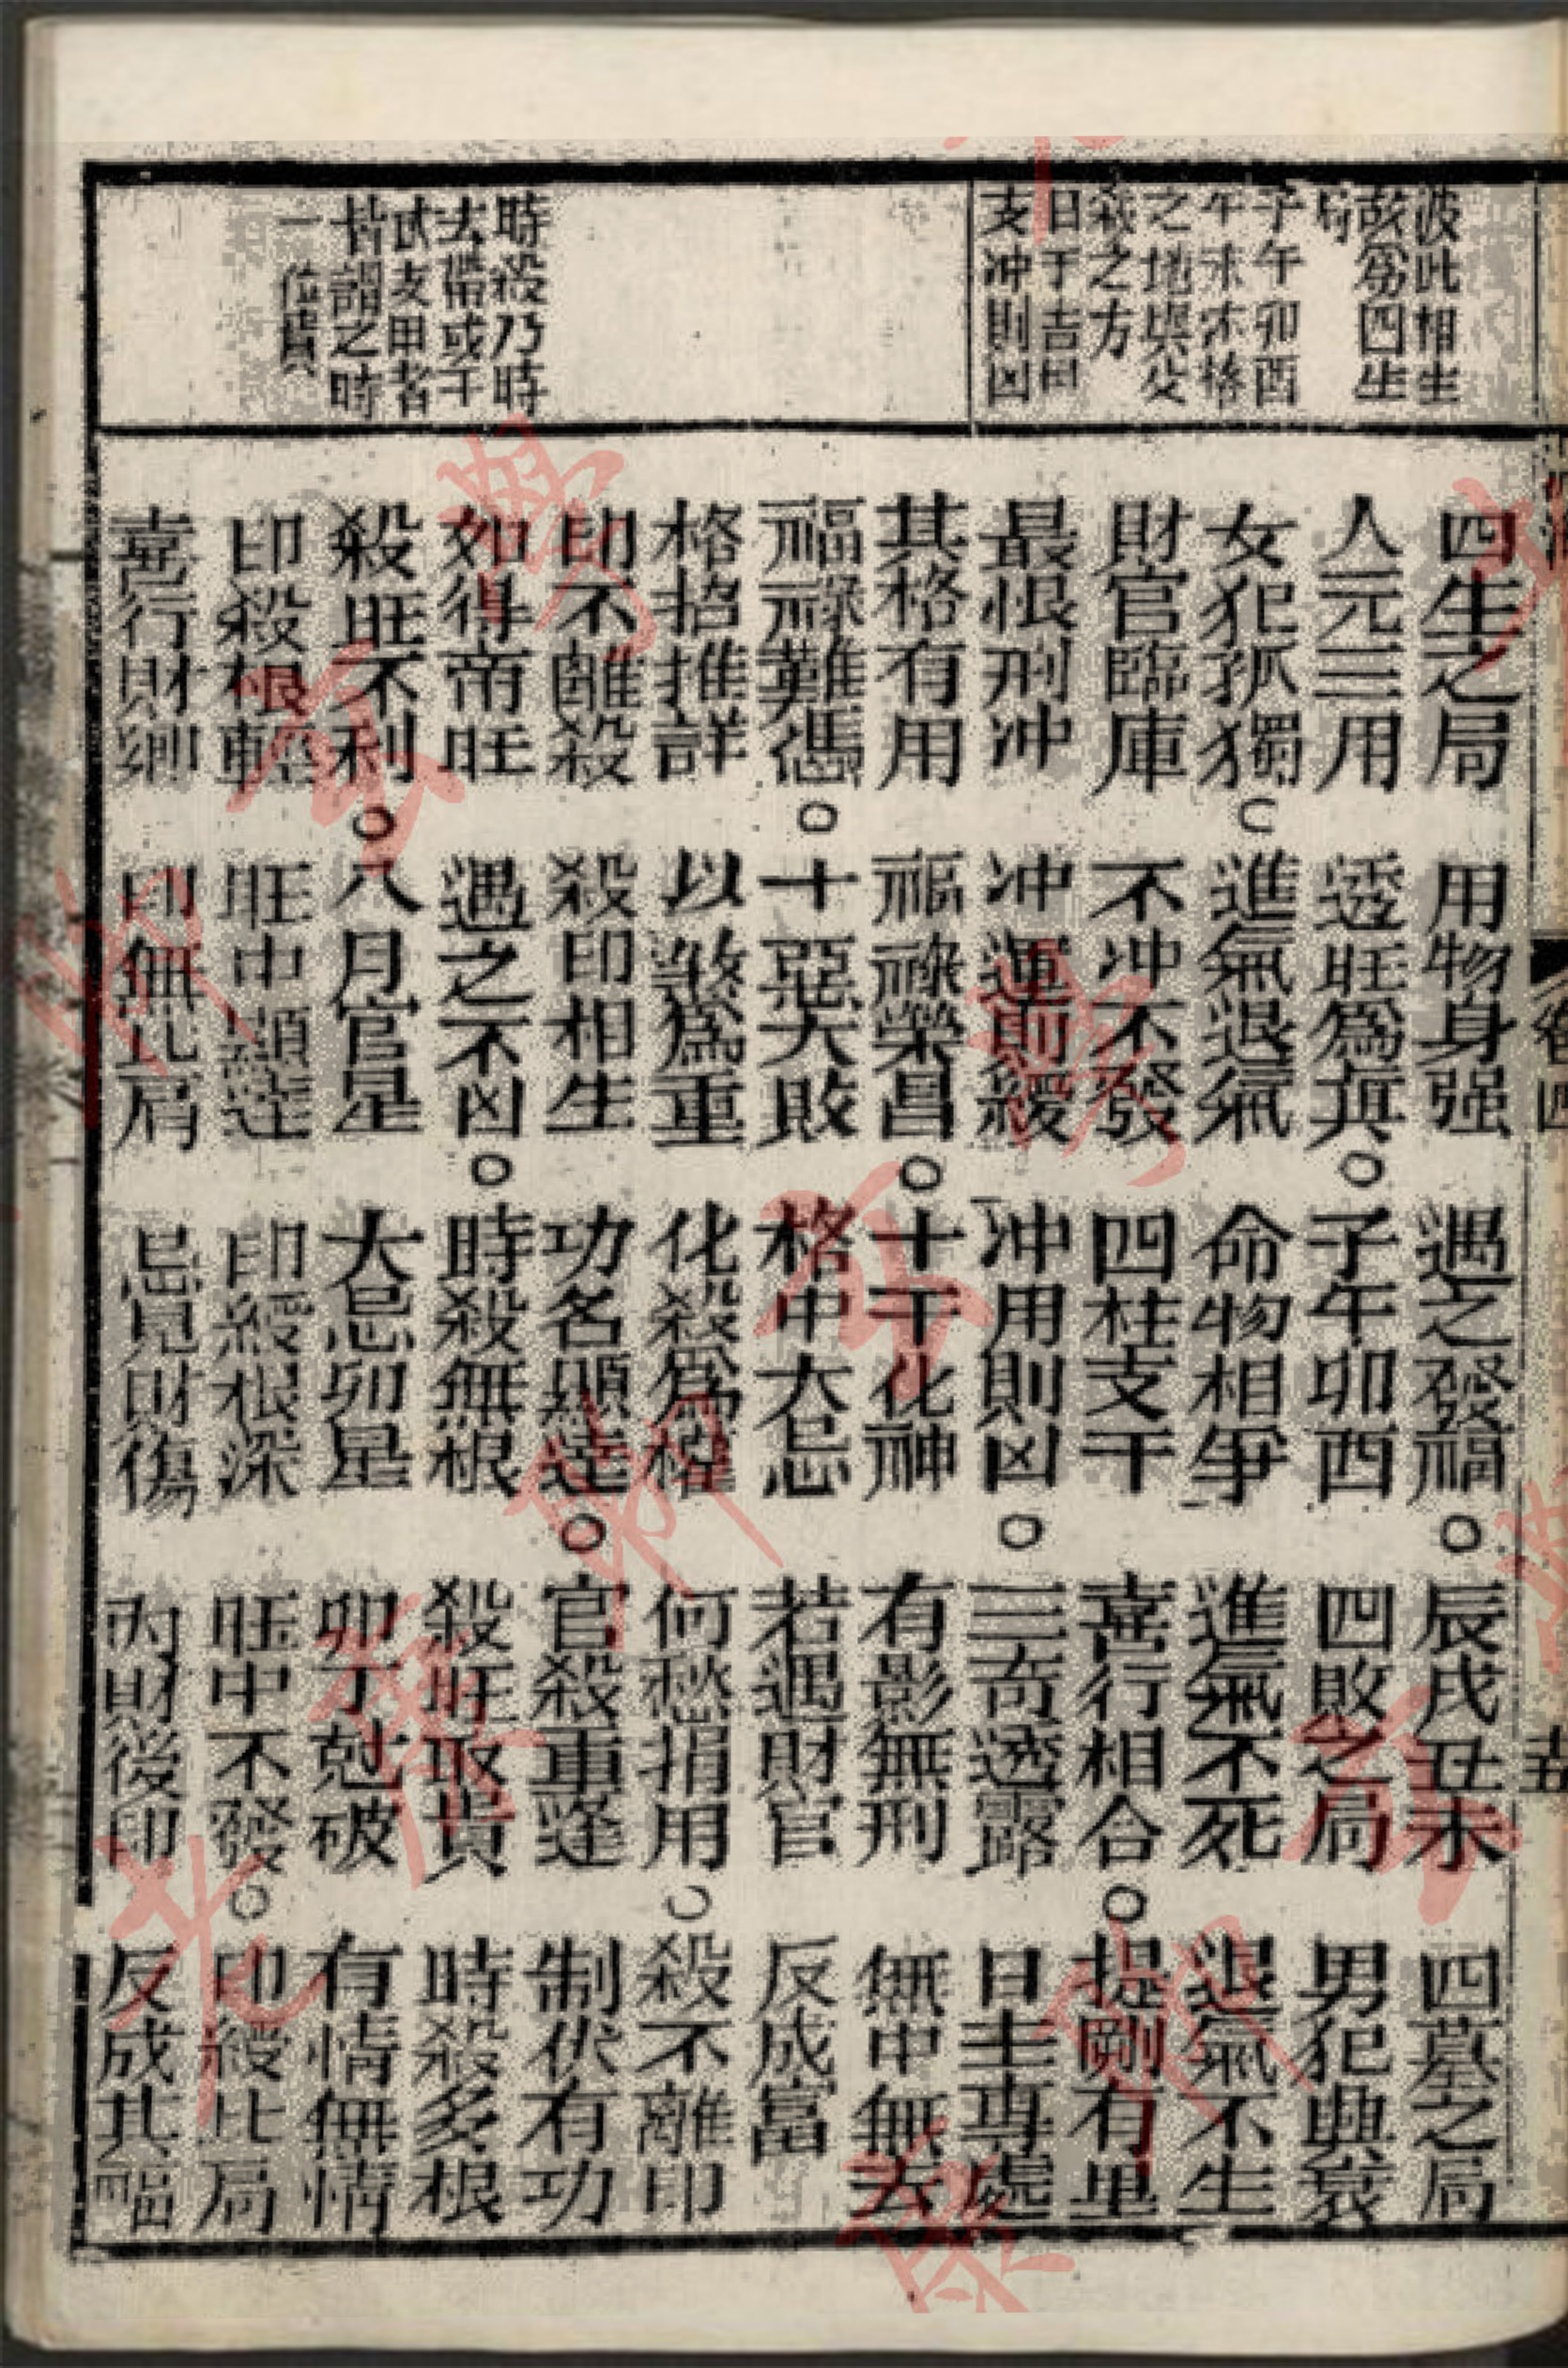 波此相生
亥為四生
局
子午卯酉
之地與父
之方
日干吉日
支冲則凶
時殺乃時
去帶或干
試支甲者
皆謂之時
一位貴
四生之局 用物身强 遇之發福○辰戌丑未 四墓之局
人元三用 透旺為真○子午卯酉 四敗之局 男犯興衰
女犯孤獨○進氣退氣 命物相爭 進氣不死 退氣不生
財官臨庫 不冲不發 四柱支干 喜行相合○提剛有里
最恨刑冲 冲運則緩 冲用則凶○三奇透露 日主專處
其格有用 福祿榮昌○十干化神 有影無刑 無中無去
福祿難憑○十惡大敗 格中大忌 若遇財官 反成富
格挌推詳 以煞為重 化殺為權 何愁損用○殺不離印
印不離殺 殺印相生 功名顯達○官殺重逢 制伏有功
如得帝旺 遇之不凶○時殺無根 殺旺取貴 時殺多根
殺旺不利○八月官星 大忌卯星 卯丁尅破 有情無情
印殺根輕 旺中顯達 印綬根深 旺中不發○印綬比局
喜行財鄉 印無比肩 忌見財傷 內財後印 反成其福